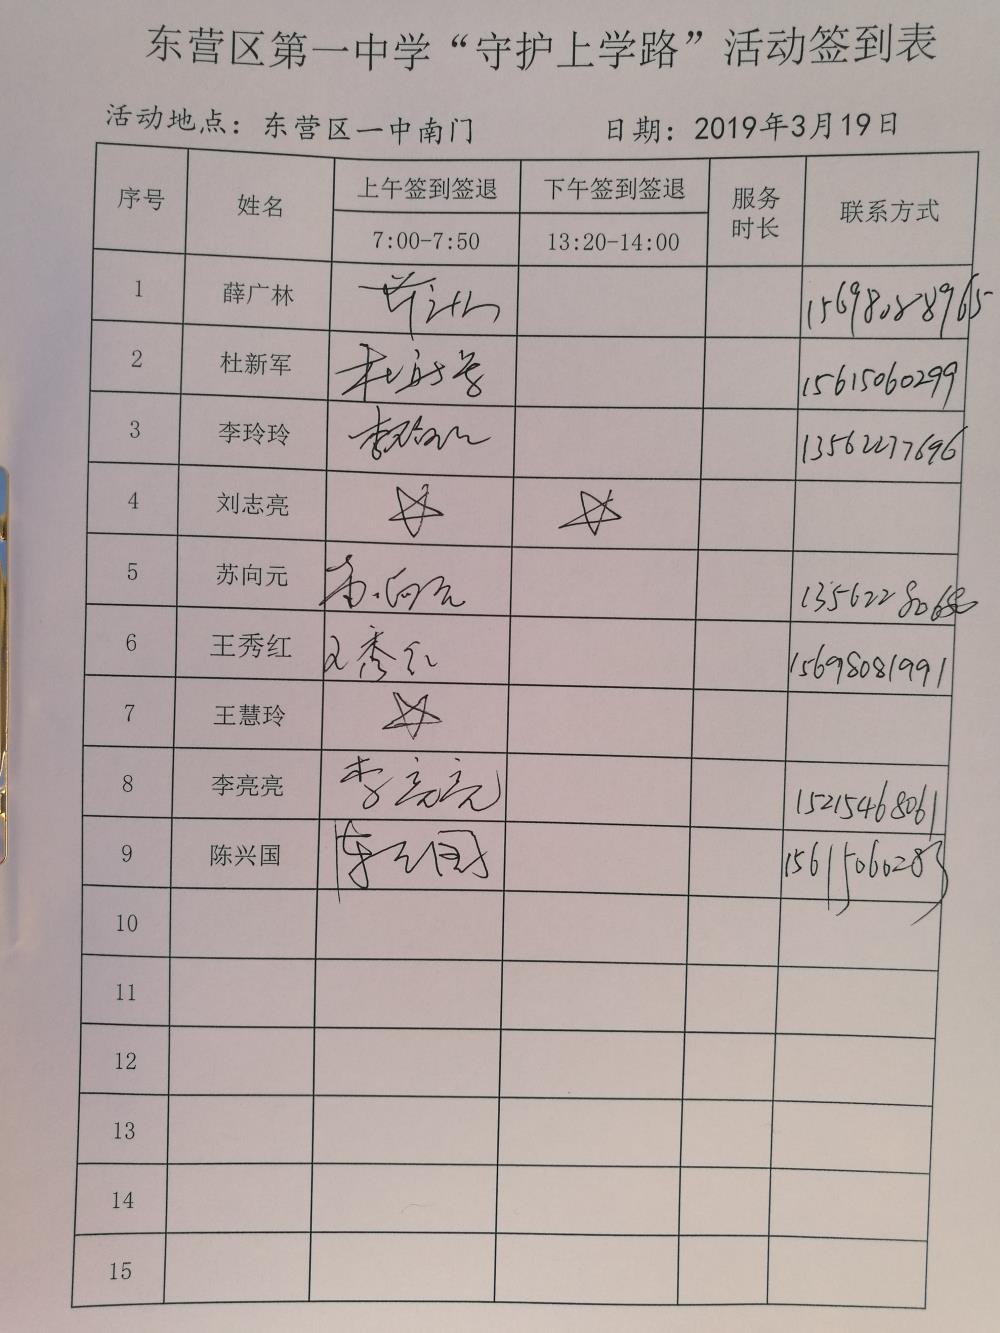 东营区第一中学“守护上学路”活动签到表
活动地点：东营区一中南门 日期：2019年3月19日
序号 姓名 上午签到签退 下午签到签退 服务时长 联系方式
7:00-7:50 13:20-14:00
1 薛广林 15698088965
2 杜新军 杜新军 15615060299
3 李玲玲 李玲玲 13562277696
4 刘志亮
5 苏向元 苏向元
6 王秀红 王秀红 15698081991
7 王慧玲
8 李亮亮 李亮亮 15215468061
9 陈兴国 陈兴国 15615060283
10
11
12
13
14
15